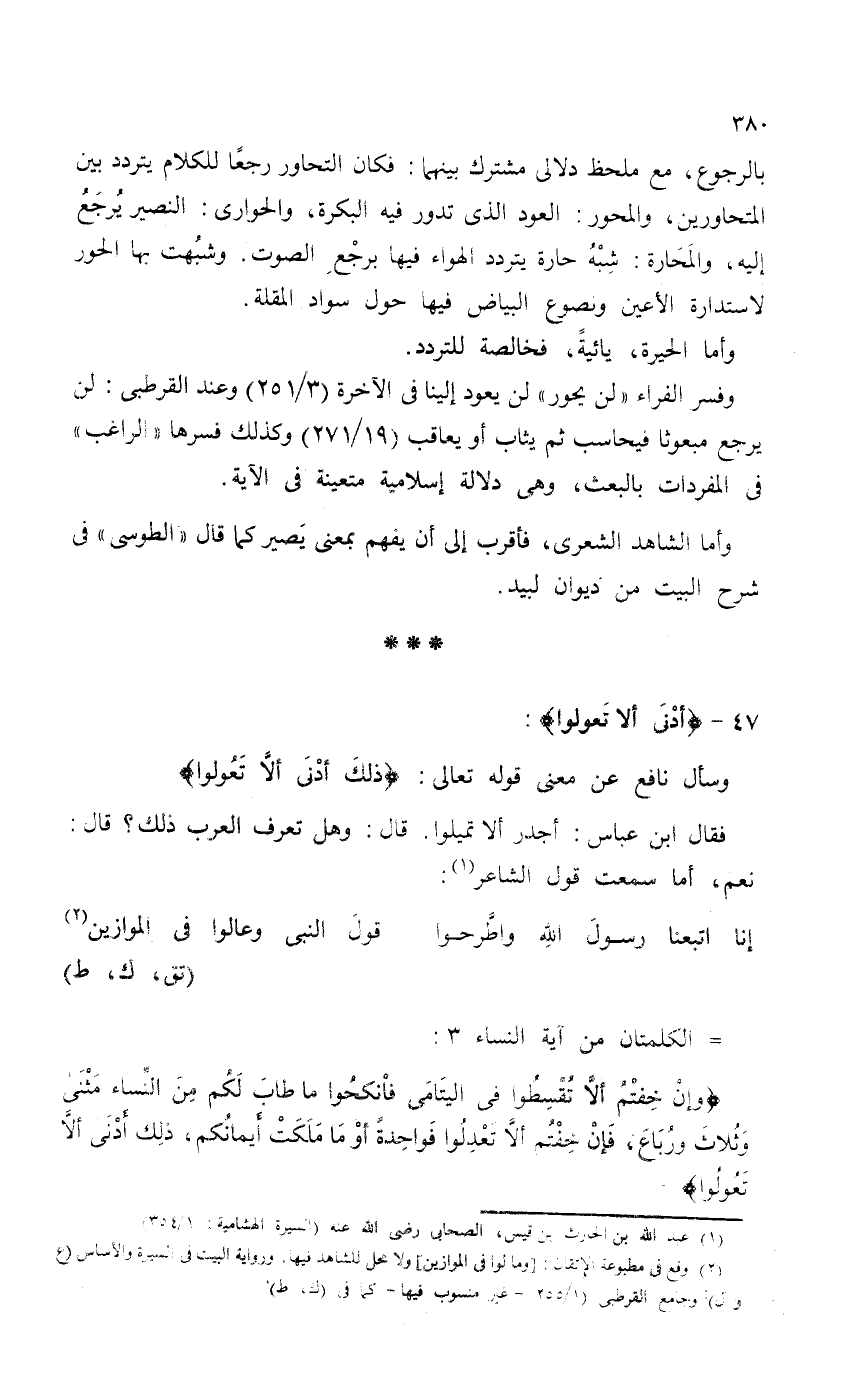 ٣٨٠
بالرجوع، مع ملحظ دلالى مشترك بينهما : فكان التحاور رجعًا للكلام يتردد بين
المتحاورين، والمحور : العود الذى تدور فيه البكرة، والحوارى : النصير يُرجَعُ
إليه، والمَحَارة : شِبْهُ حارة يتردد الهواء فيها برجْع الصوت. وشبُهت بها الحور
لاستدارة الأعين ونصوع البياض فيها حول سواد المقلة.
وأما الحيرة، يائيةً، فخالصة للتردد.
وفسر الفراء «لن يحور» لن يعود إلينا فى الآخرة (٢٥١/٣) وعند القرطبى : لن
يرجع مبعوثا فيحاسب ثم يثاب أو يعاقب (٢٧١/١٩) وكذلك فسرها «الراغب»
فى المفردات بالبعث، وهى دلالة إسلامية متعينة فى الآية.
وأما الشاهد الشعرى، فأقرب إلى أن يفهم بمعنى يَصير كما قال «الطوسى» فى
شرح البيت من ديوان لبيد.
***
٤٧ - ﴿أدْنَى ألا تَعولوا﴾ :
وسأل نافع عن معنى قوله تعالى : ﴿ذلكَ أدْنَى ألاَّ تَعُولوا﴾
فقال ابن عباس : أجدر ألا تميلوا. قال : وهل تعرف العرب ذلك؟ قال :
نعم، أما سمعت قول الشاعر(١):
إنا اتبعنا رسولَ اللهِ واطَّرحوا قولَ النبى وعالوا فى الموازين(٢)
(تق، ك، ط)
= الكلمتان من آية النساء ٣ :
﴿وإنْ خِفتْمُ ألاَّ تُقْسِطُوا فى اليتَامَى فأنكحُوا ما طابَ لَكُم مِنَ النِّساء مَثْنَىٰ
وَثُلاثَ ورُبَاعَ، فَإنْ خِفْتُم ألاَّ تَعْدِلُوا فَواحِدةً أوْ مَا مَلَكَتْ أيمانُكم، ذلِك أَدْنَى ألاَّ
تَعُولُوا﴾
(١) عبد الله بن الحارث بن قيس، الصحابى رضى الله عنه (السيرة الهشامية : ٣٥٤/١)
(٢) وقع فى مطبوعة الإتقان : [وما لوا فى الموازين] ولا محل للشاهد فيها. ورواية البيت فى السيرة والأساس (ع
و ل) وجامع القرطبى (٢٥٥/١ - غير منسوب فيها - كما فى (ك، ط)